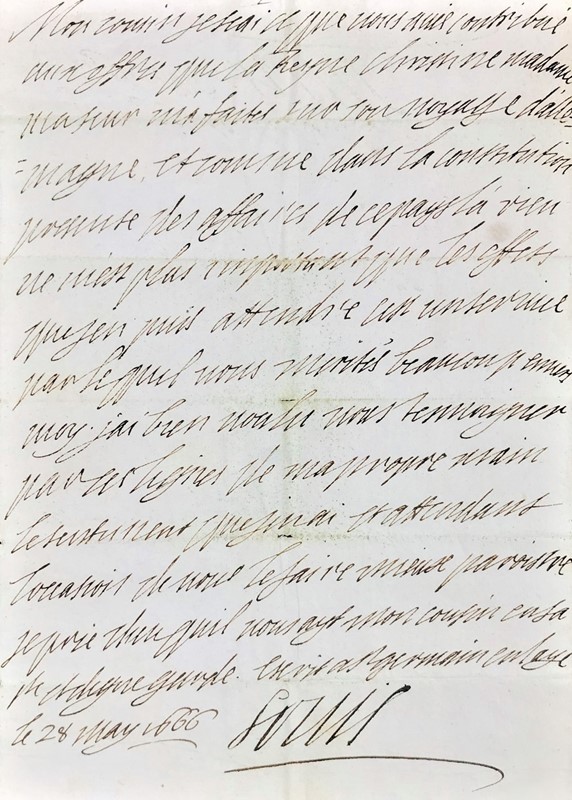 Mon cousin je sçai ce que vous avés contribué
aux offres que la Reyne christine madame
ma seur m'a faites sur son voyage d'alle-
-magne, et comme dans la constitution
presente des affaires de ce pays là rien
ne m'est plus important que les effets
que j'en puis attendre c'est un service
par lequel vous merités beaucoup envers
moy. j'ai bien voulu vous temoigner
par ces lignes de ma propre main
le sentiment que j'en ai et attendant
l'occasion de vous le faire mieux paroistre
je prie dieu qu'il vous ayt mon cousin en sa
ste et digne garde. Escrit a St germain en laye
le 28 May 1666 Louis